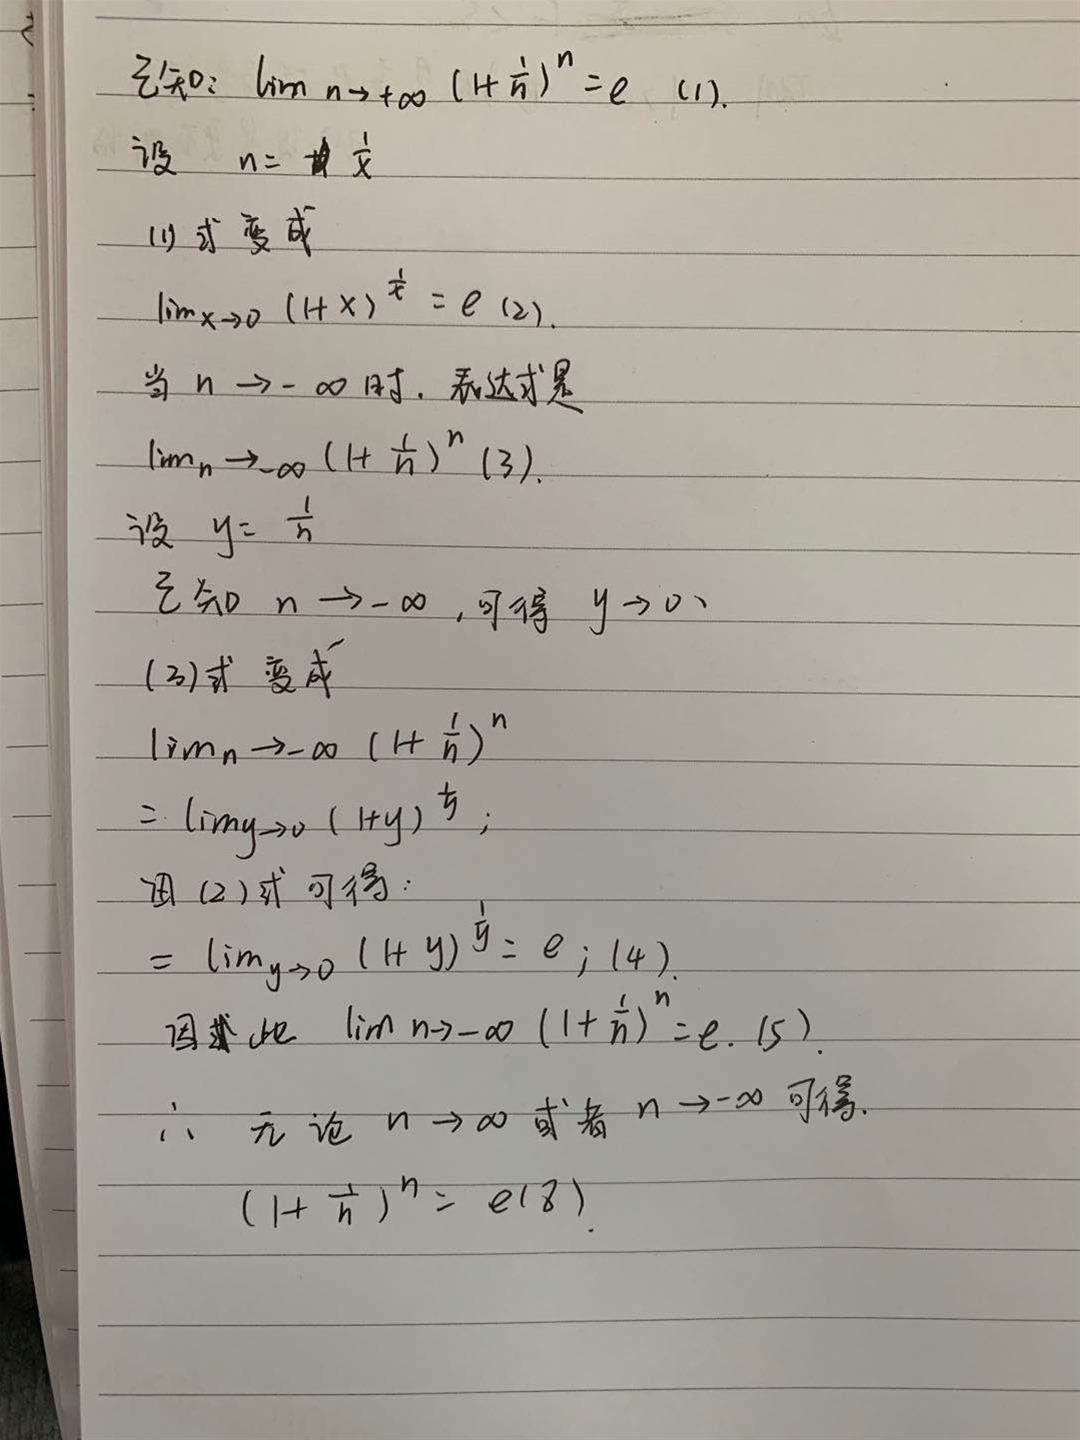 已知: lim n→+∞ (1+1/n)^n = e (1).
设 n= 1/x
(1) 式变成
lim x→0 (1+x)^1/x = e (2).
当 n → -∞ 时. 表达式是
lim n→-∞ (1+1/n)^n (3).
设 y= 1/n
已知 n → -∞, 可得 y→0、
(3)式 变成
lim n→-∞ (1+1/n)^n
= lim y→0 (1+y)^1/y ;
由 (2)式 可得:
= lim y→0 (1+y)^1/y = e ; (4).
因此 lim n→-∞ (1+1/n)^n = e. (5).
∴ 无论 n→∞ 或者 n→-∞ 可得.
(1+1/n)^n = e (8).